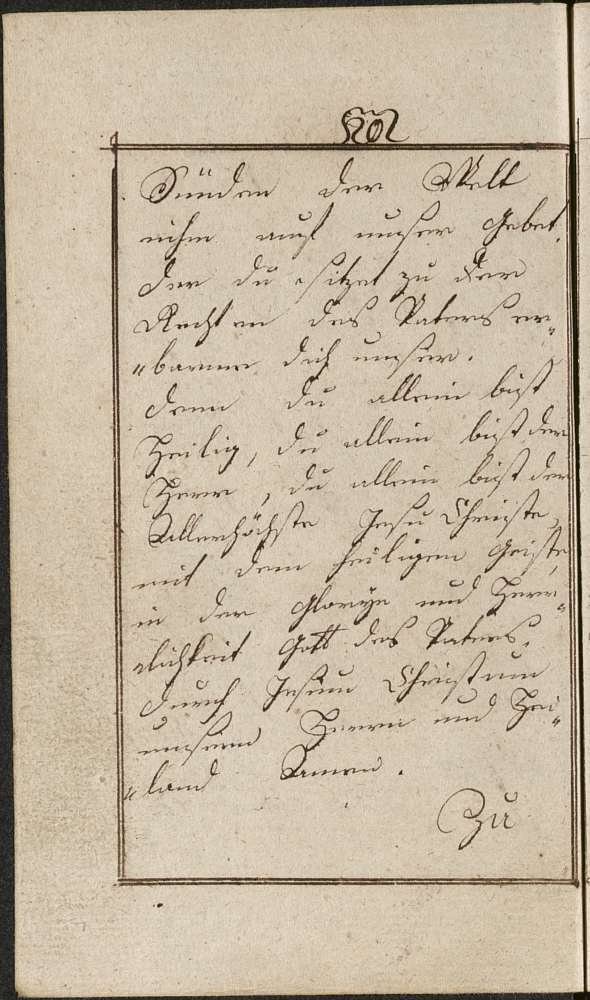 Sünden der Welt
nihm auf unser Gebet.
der du sitzet zu der
Rechten des Vaters er„
„barme dich unser.
denn du allein bist
Heilig, du allein bist der
Herr, du allein bist der
Allerhöchste Jesu Christe,
mit dem heiligen Geiste,
in der Glorye und Herr„
„lichkeit Gott des Vaters.
durch Jesum Christum
unsern Herrn und Hei„
„land Amen.
Zu